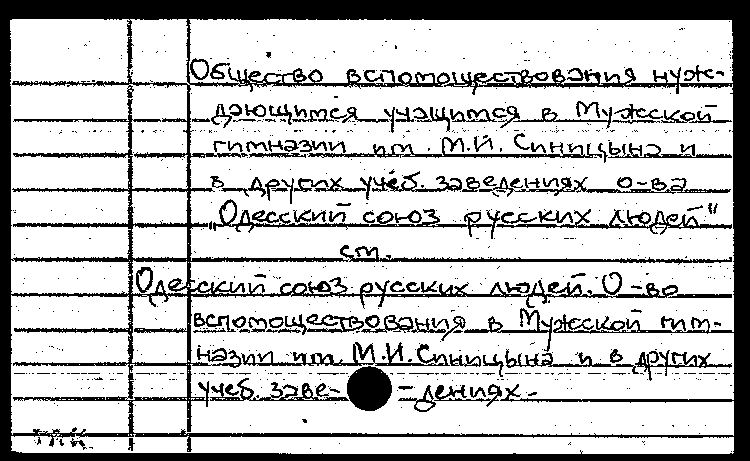 Общество вспомоществования нуж-
дающимся учащимся в Мужской
гимназии им. М.И. Синицына и
в других учеб. заведениях о-ва
„Одесский союз русских людей"
см.
Одесский союз русских людей. О-во
вспомоществования в Мужской гим-
назии им. М.И. Синицына и в других
учеб. заве- - дениях.